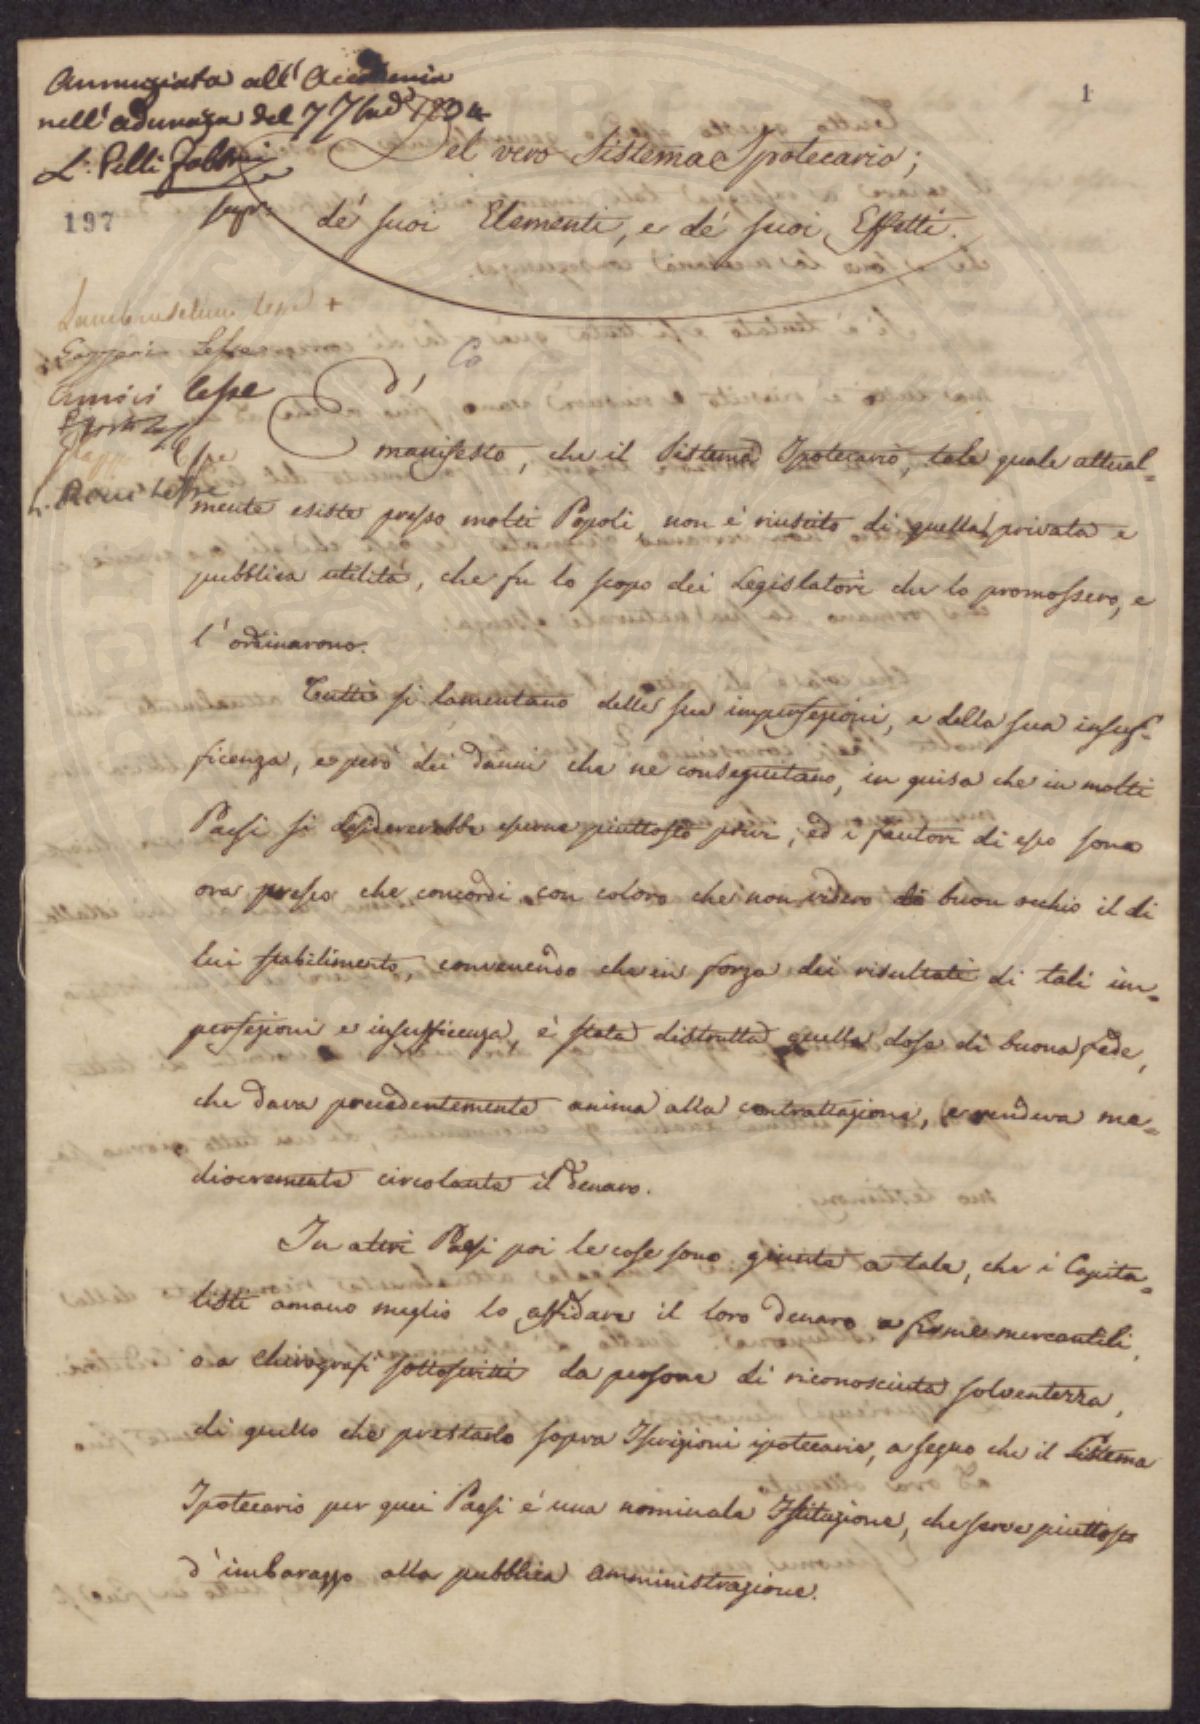 Annunziata all'Accademia
nell'adunanza del 7 7bre
L: Pelli Fabbroni
Segr:
197
1
Del vero Sistema Ipotecario;
de' suoi Elementi, e de' suoi Effetti.
lesse +
Gazzeri Lesse
Amici lesse
lesse
Lesse
É
manifesto, che il Sistema Ipotecario, tale quale attual=
mente esiste presso molti Popoli non è riuscito di quella privata e
pubblica utilità, che fu lo scopo dei Legislatori che lo promossero, e
l'ordinarono.
Tutti si lamentano delle sue imperfezioni, e della sua insuf=
ficenza, e però dei danni che ne conseguitano, in guisa che in molti
Paesi si desidererebbe esserne piuttosto privi, ed i fautori di esso sono
ora presso che concordi con coloro che non videro di buon occhio il di
lui stabilimento, convenendo che in forza dei risultati di tali im=
perfezioni e insufficenza, è stata distrutta quella dose di buona fede,
che dava precedentemente anima alla contrattazione, e rendeva me=
diocremente circolante il denaro.
In altri Paesi poi le cose sono giunte a tale, che i Capita=
listi amano meglio lo affidare il loro denaro a firme mercantili,
o a chirografi sottoscritti da persone di riconosciuta solventezza,
di quello che prestarlo sopra Iscrizioni ipotecarie, a segno che il Sistema
Ipotecario per quei Paesi è una nominale Istituzione, che serve piuttosto
d'imbarazzo alla pubblica amministrazione.